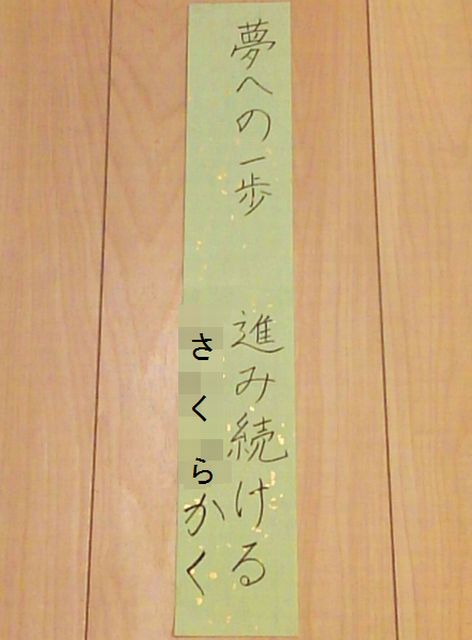 夢への一歩　進み続ける
さくらかく